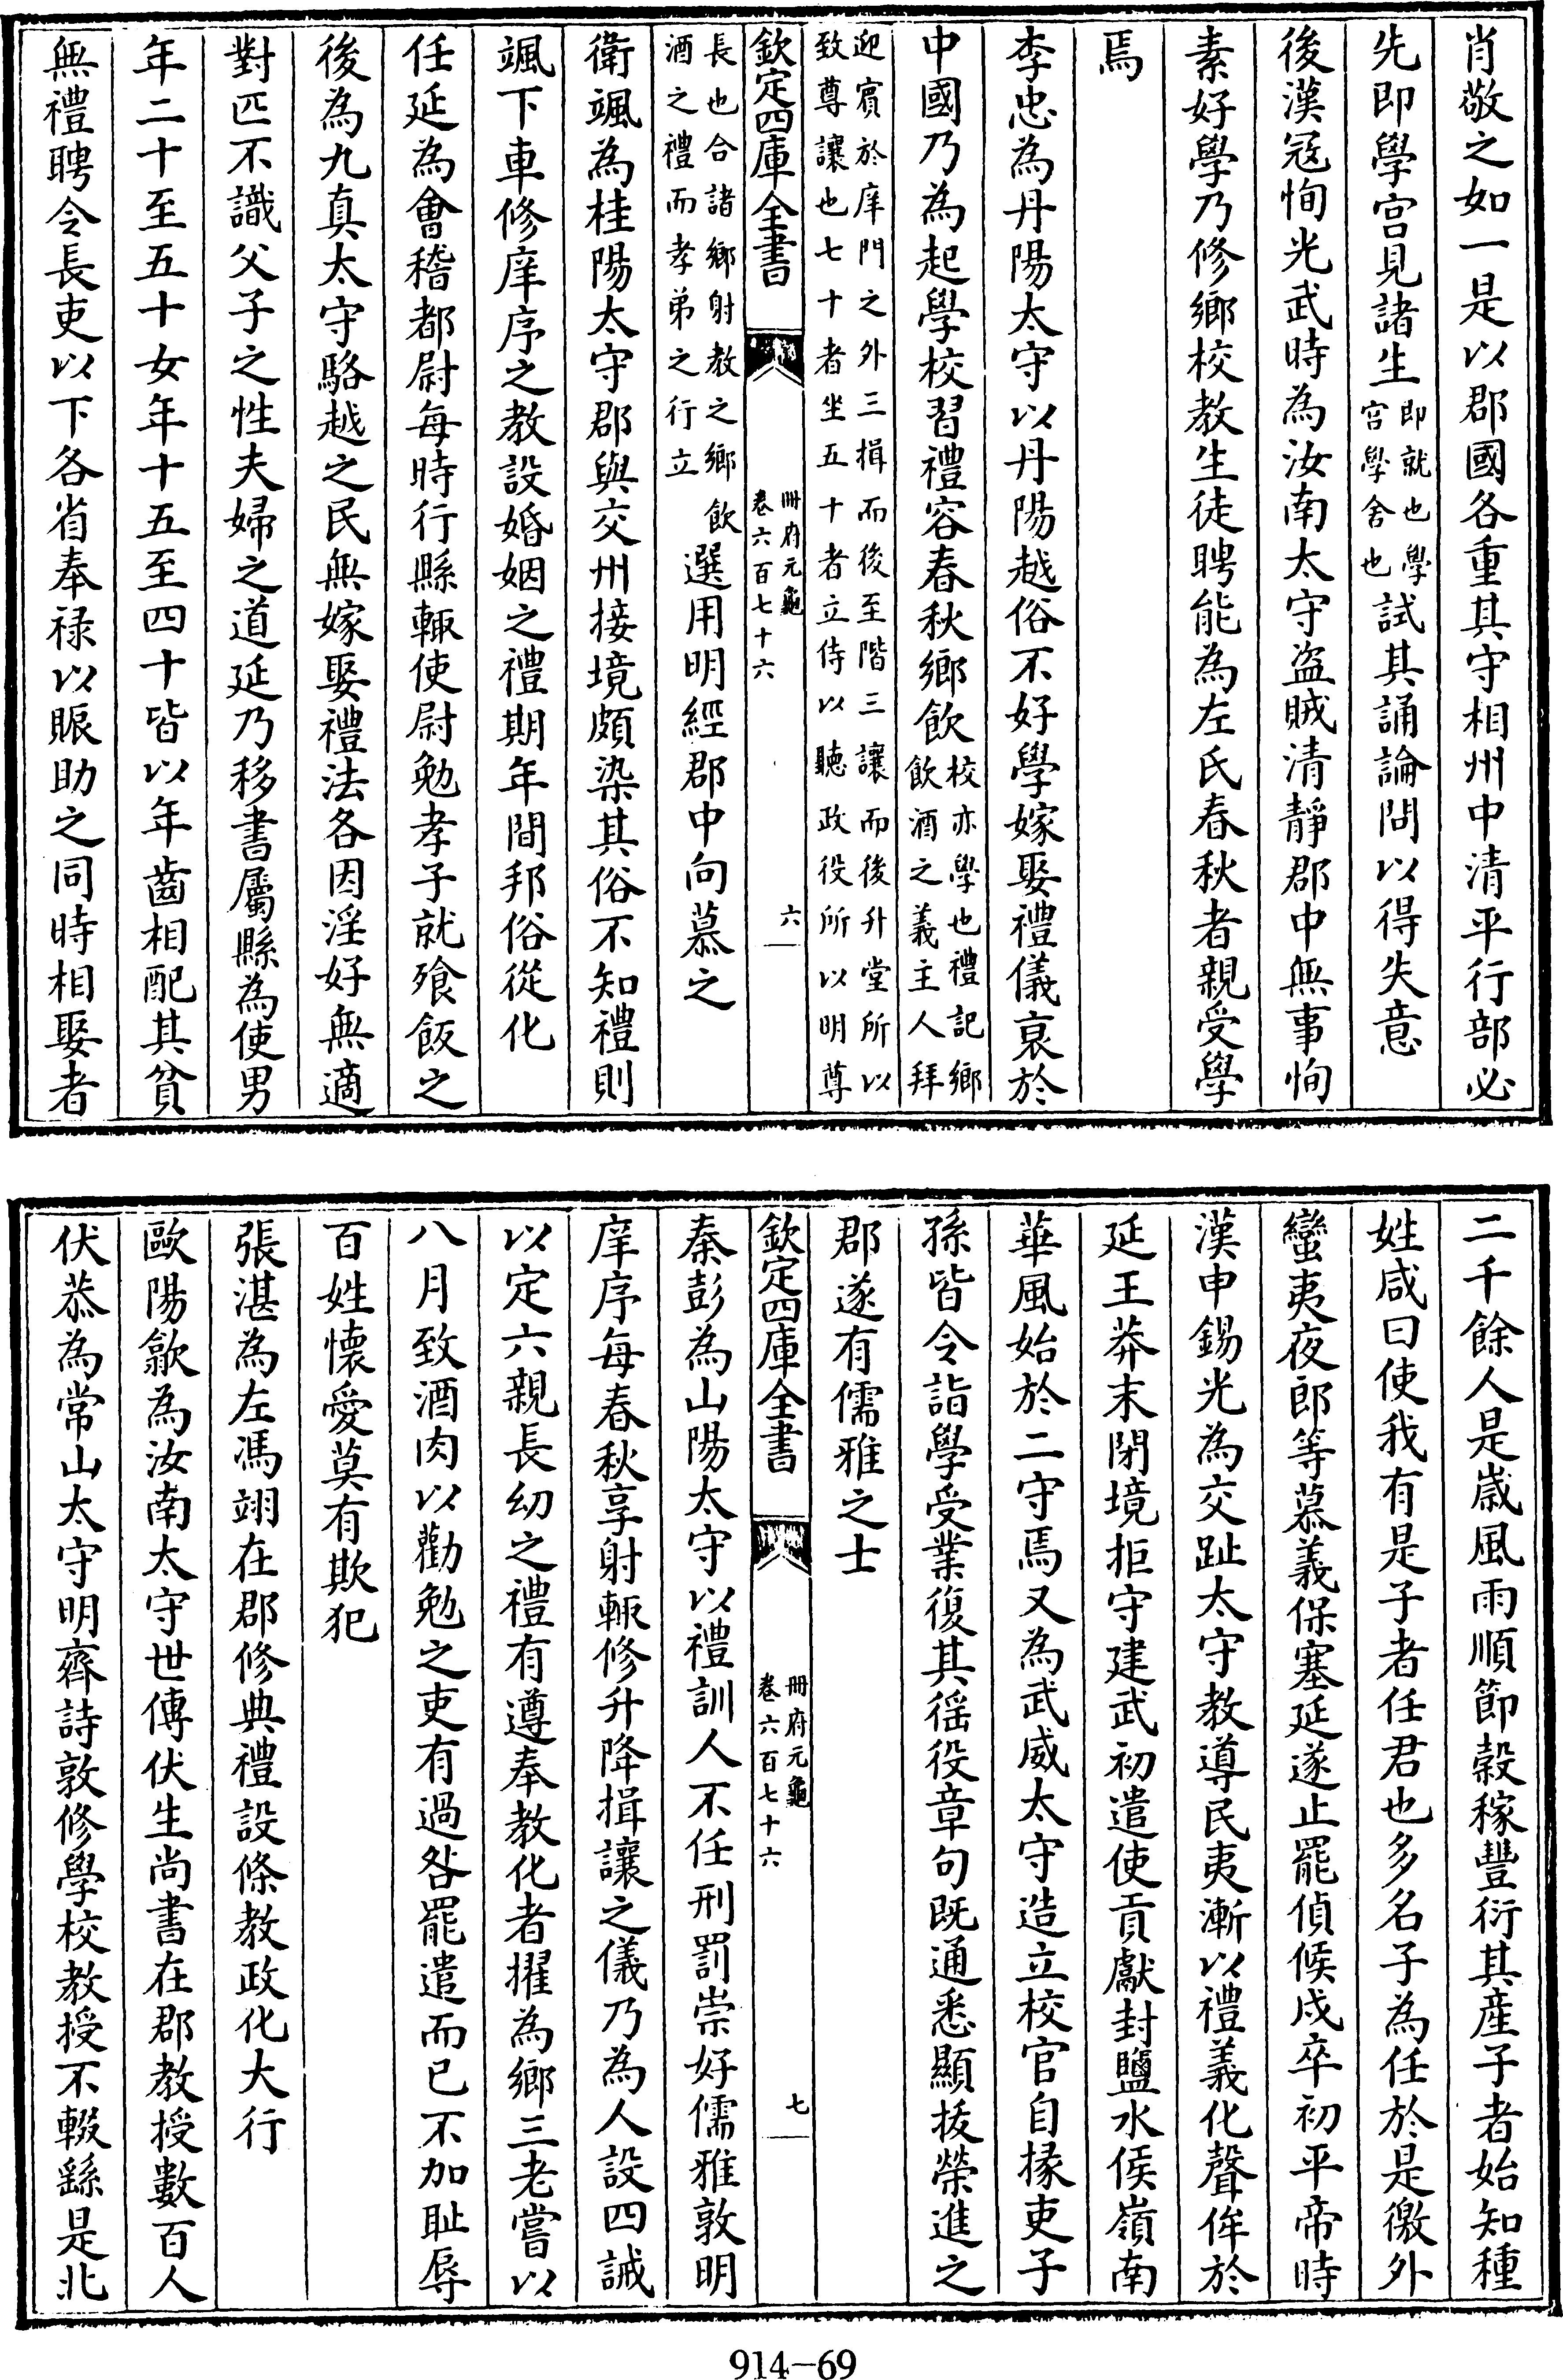 肖敬之如一是以郡國各重其守相州中清平行部必
先即學宫見諸生即就也學宫學舍也試其誦論問以得失意
後漢冦恂光武時為汝南太守盜賊清靜郡中無事恂
素好學乃修鄉校教生徒聘能為左氏春秋者親受學
焉
李忠為丹陽太守以丹陽越俗不好學嫁娶禮儀衰於
中國乃為起學校習禮容春秋鄉飲校亦學也禮記鄉飲酒之義主人拜
迎賓於庠門之外三揖而後至階三讓而後升堂所以
致尊讓也七十者坐五十者立侍以聽政役所以明尊
欽定四庫全書
冊府元龜
卷六百七十六
六
長也合諸鄉射教之鄉飲
酒之禮而孝弟之行立
選用明經郡中向慕之
衛颯為桂陽太守郡與交州接境頗染其俗不知禮則
颯下車修庠序之教設婚姻之禮期年間邦俗從化
任延為會稽都尉每時行縣輒使尉勉孝子就飱飯之
後為九真太守駱越之民無嫁娶禮法各因淫好無適
對匹不識父子之性夫婦之道延乃移書屬縣為使男
年二十至五十女年十五至四十皆以年齒相配其貧
無禮聘令長吏以下各省奉禄以賑助之同時相娶者
二千餘人是嵗風雨順節榖稼豐衍其産子者始知種
姓咸曰使我有是子者任君也多名子為任於是徼外
蠻夷夜郎等慕義保塞延遂止罷偵候戍卒初平帝時
漢申錫光為交趾太守教導民夷漸以禮義化聲侔於
延王莽末閉境拒守建武初遣使貢獻封鹽水侯嶺南
華風始於二守焉又為武威太守造立校官自掾吏子
孫皆令詣學受業復其徭役章句既通悉顯拔榮進之
郡遂有儒雅之士
欽定四庫全書
冊府元龜
卷六百七十六
七
秦彭為山陽太守以禮訓人不任刑罰崇好儒雅敦明
庠序每春秋享射輒修升降揖讓之儀乃為人設四誡
以定六親長幼之禮有遵奉教化者擢為鄉三老嘗以
八月致酒肉以勸勉之吏有過咎罷遣而已不加恥辱
百姓懷愛莫有欺犯
張湛為左馮翊在郡修典禮設條教政化大行
歐陽歙為汝南太守世傳伏生尚書在郡教授數百人
伏恭為常山太守明齊詩敦修學校教授不輟繇是北
914-69